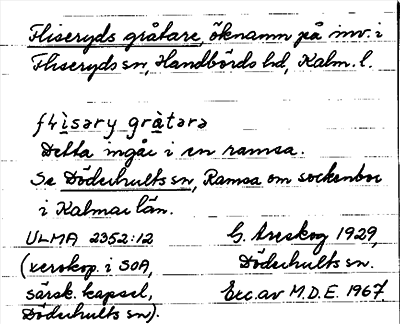 Fliseryds gråtare, öknamn på inv. i
Fliseryds sn, Handbörds hd, Kalm. l.
flìsəry gràtərə
Detta ingår i en ramsa.
Se Döderhults sn, Ramsa om sockenbor
i Kalmar län.
ULMA 2352:12
(xerokop. i SOA,
särsk. kapsel,
Döderhults sn).
G. Areskog 1929,
Döderhults sn.
Exc. av M.D.E. 1967.